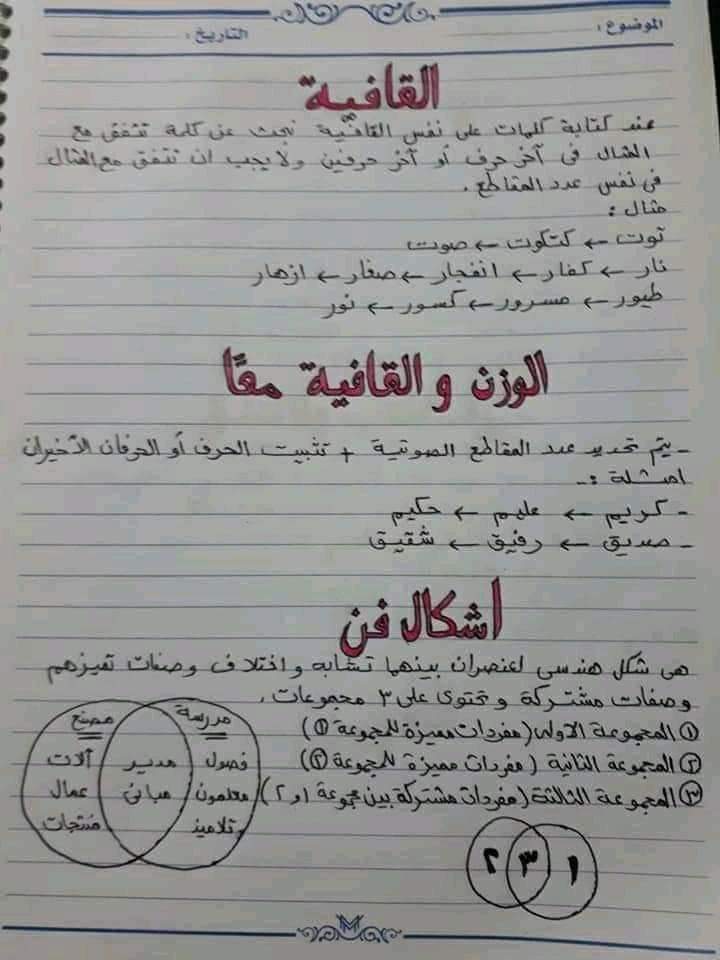 الموضوع: التاريخ:
القافية
عند كتابة كلمات على نفس القافية نبحث عن كلمة تتفق مع
المثال فى آخر حرف أو آخر حرفين ولا يجب ان تتفق مع المثال
فى نفس عدد المقاطع.
مثال:
توت ← كتكوت ← صوت
نار ← كفار ← انفجار ← صغار ← ازهار
طيور ← مسرور ← كسور ← نور
الوزن و القافية معًا
- يتم تحديد عدد المقاطع الصوتية + تثبيت الحرف أو الحرفان الأخيران
امثلة :-
- كريم ← عليم ← حكيم
- صديق ← رفيق ← شقيق
اشكال فن
هى شكل هندسى لعنصران بينهما تشابه و اختلاف وصفات تميزهم
وصفات مشتركة و تحتوى على ٣ مجموعات.
① المجموعة الاولى (مفردات مميزة للمجموعة ①)
② المجموعة الثانية (مفردات مميزة للمجموعة ②)
③ المجموعة الثالثة (مفردات مشتركة بين مجموعة ١ و ٢)
مدرسة مصنع
فصول مدير آلات
معلمون مبانى عمال
تلاميذ منتجات
١ ٣ ٢